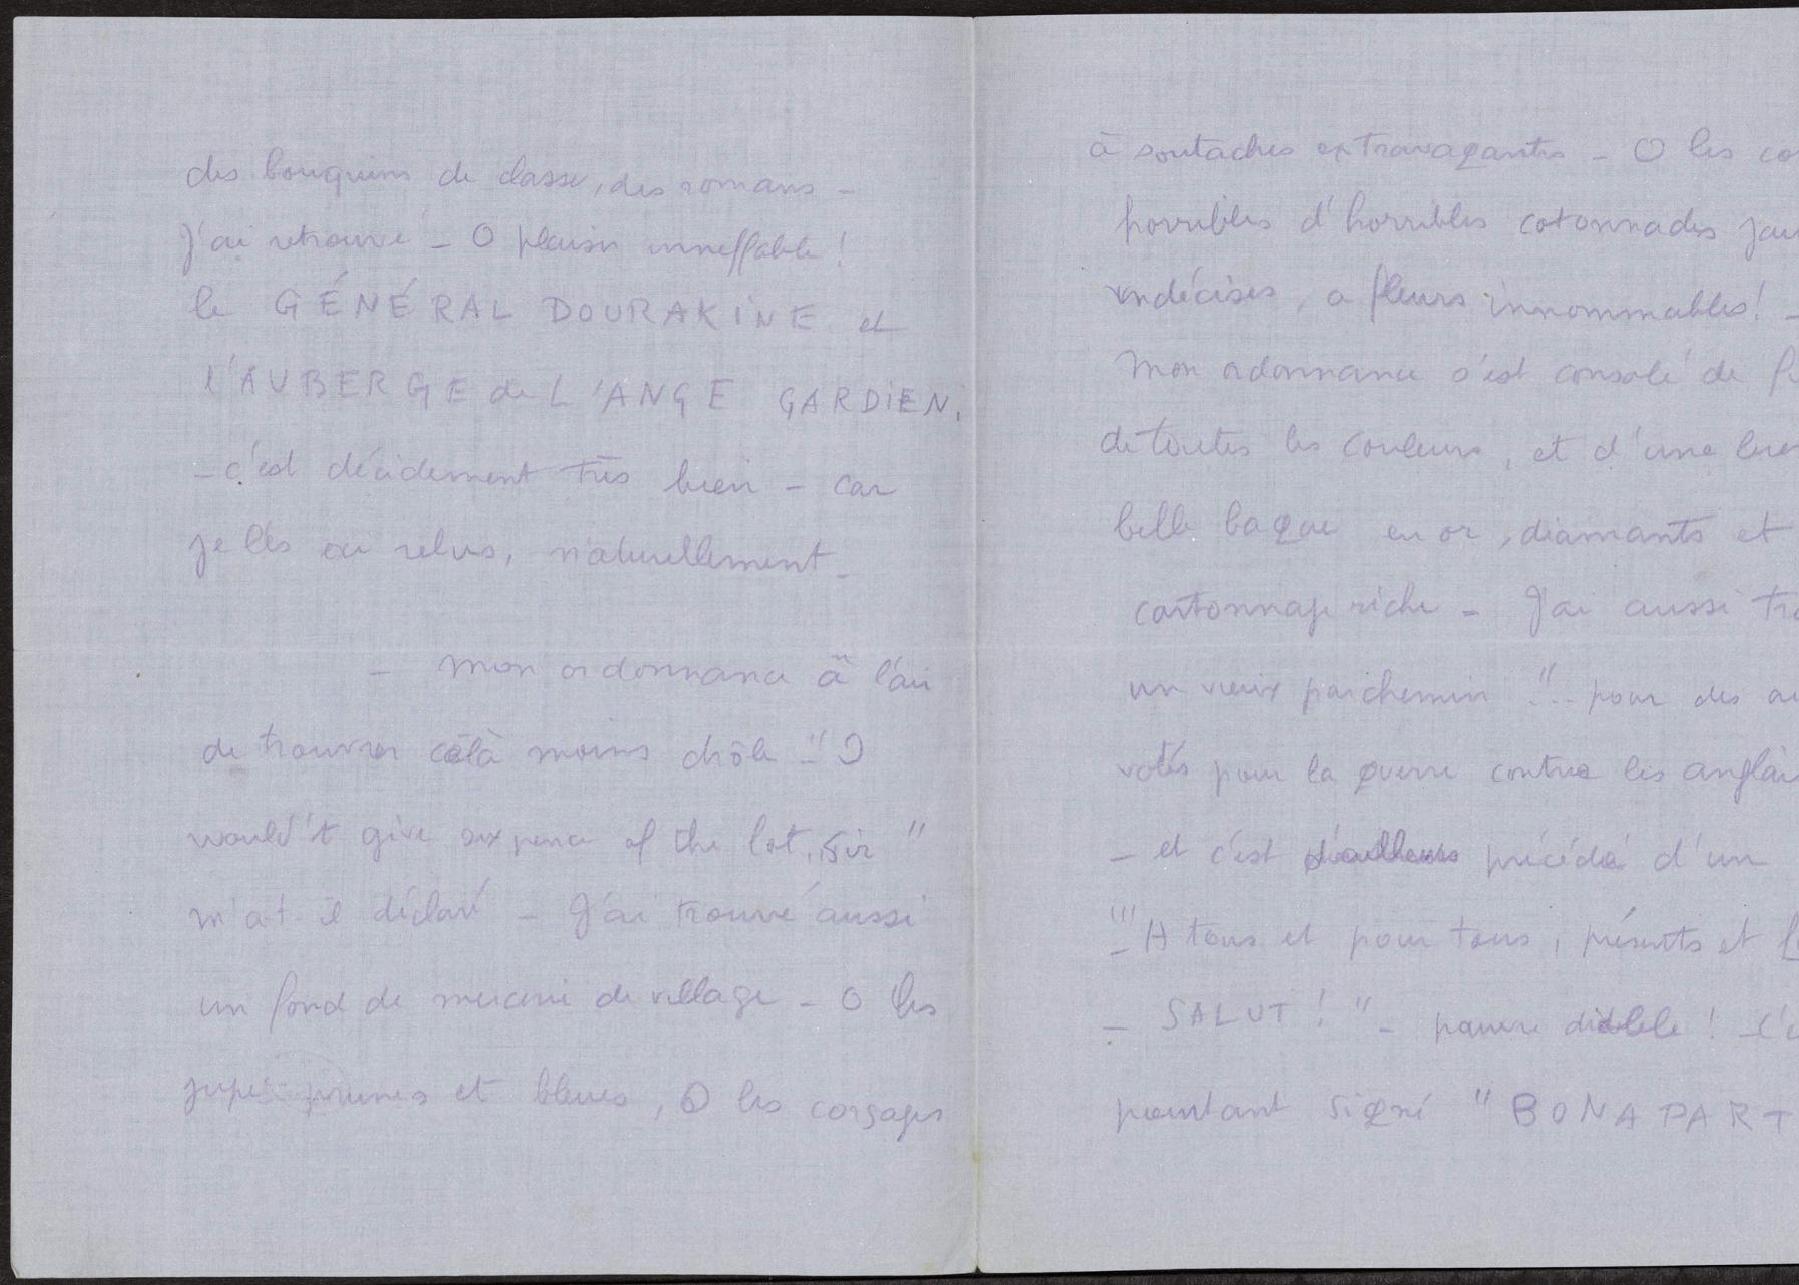 des bouquins de classe, des romans -
J'ai retrouvé - O plaisir inneffable !
le GÉNÉRAL DOURAKINE et
l'AUBERGE de L'ANGE GARDIEN.
- c'est décidement très bien - car
je les ai relus, naturellement -
- Mon ordonnance à l'air
de trouver celà moins drôle - "I
would't give six pence of the lot, Sir"
m'a t-il déclaré - J'ai trouvé aussi
un fond de mercerie de village - O les
jupes prunes et bleues, O les corsages
à soutaches extravagantes - O les
horribles d'horribles cotonnades
indécises, a fleurs innommables! -
Mon ordonnance s'est consolé de
de toutes les couleurs, et d'une
belle bague en or, diamants et
cartonnage riche - J'ai aussi
un vieux parchemin !".. pour des
votés pour la guerre contre les anglais
- et c'est d'ailleurs précédé d'un
- "A tous et pour tous, présents et
- SALUT ! " - pauvre diable !
pourtant signé "BONAPART